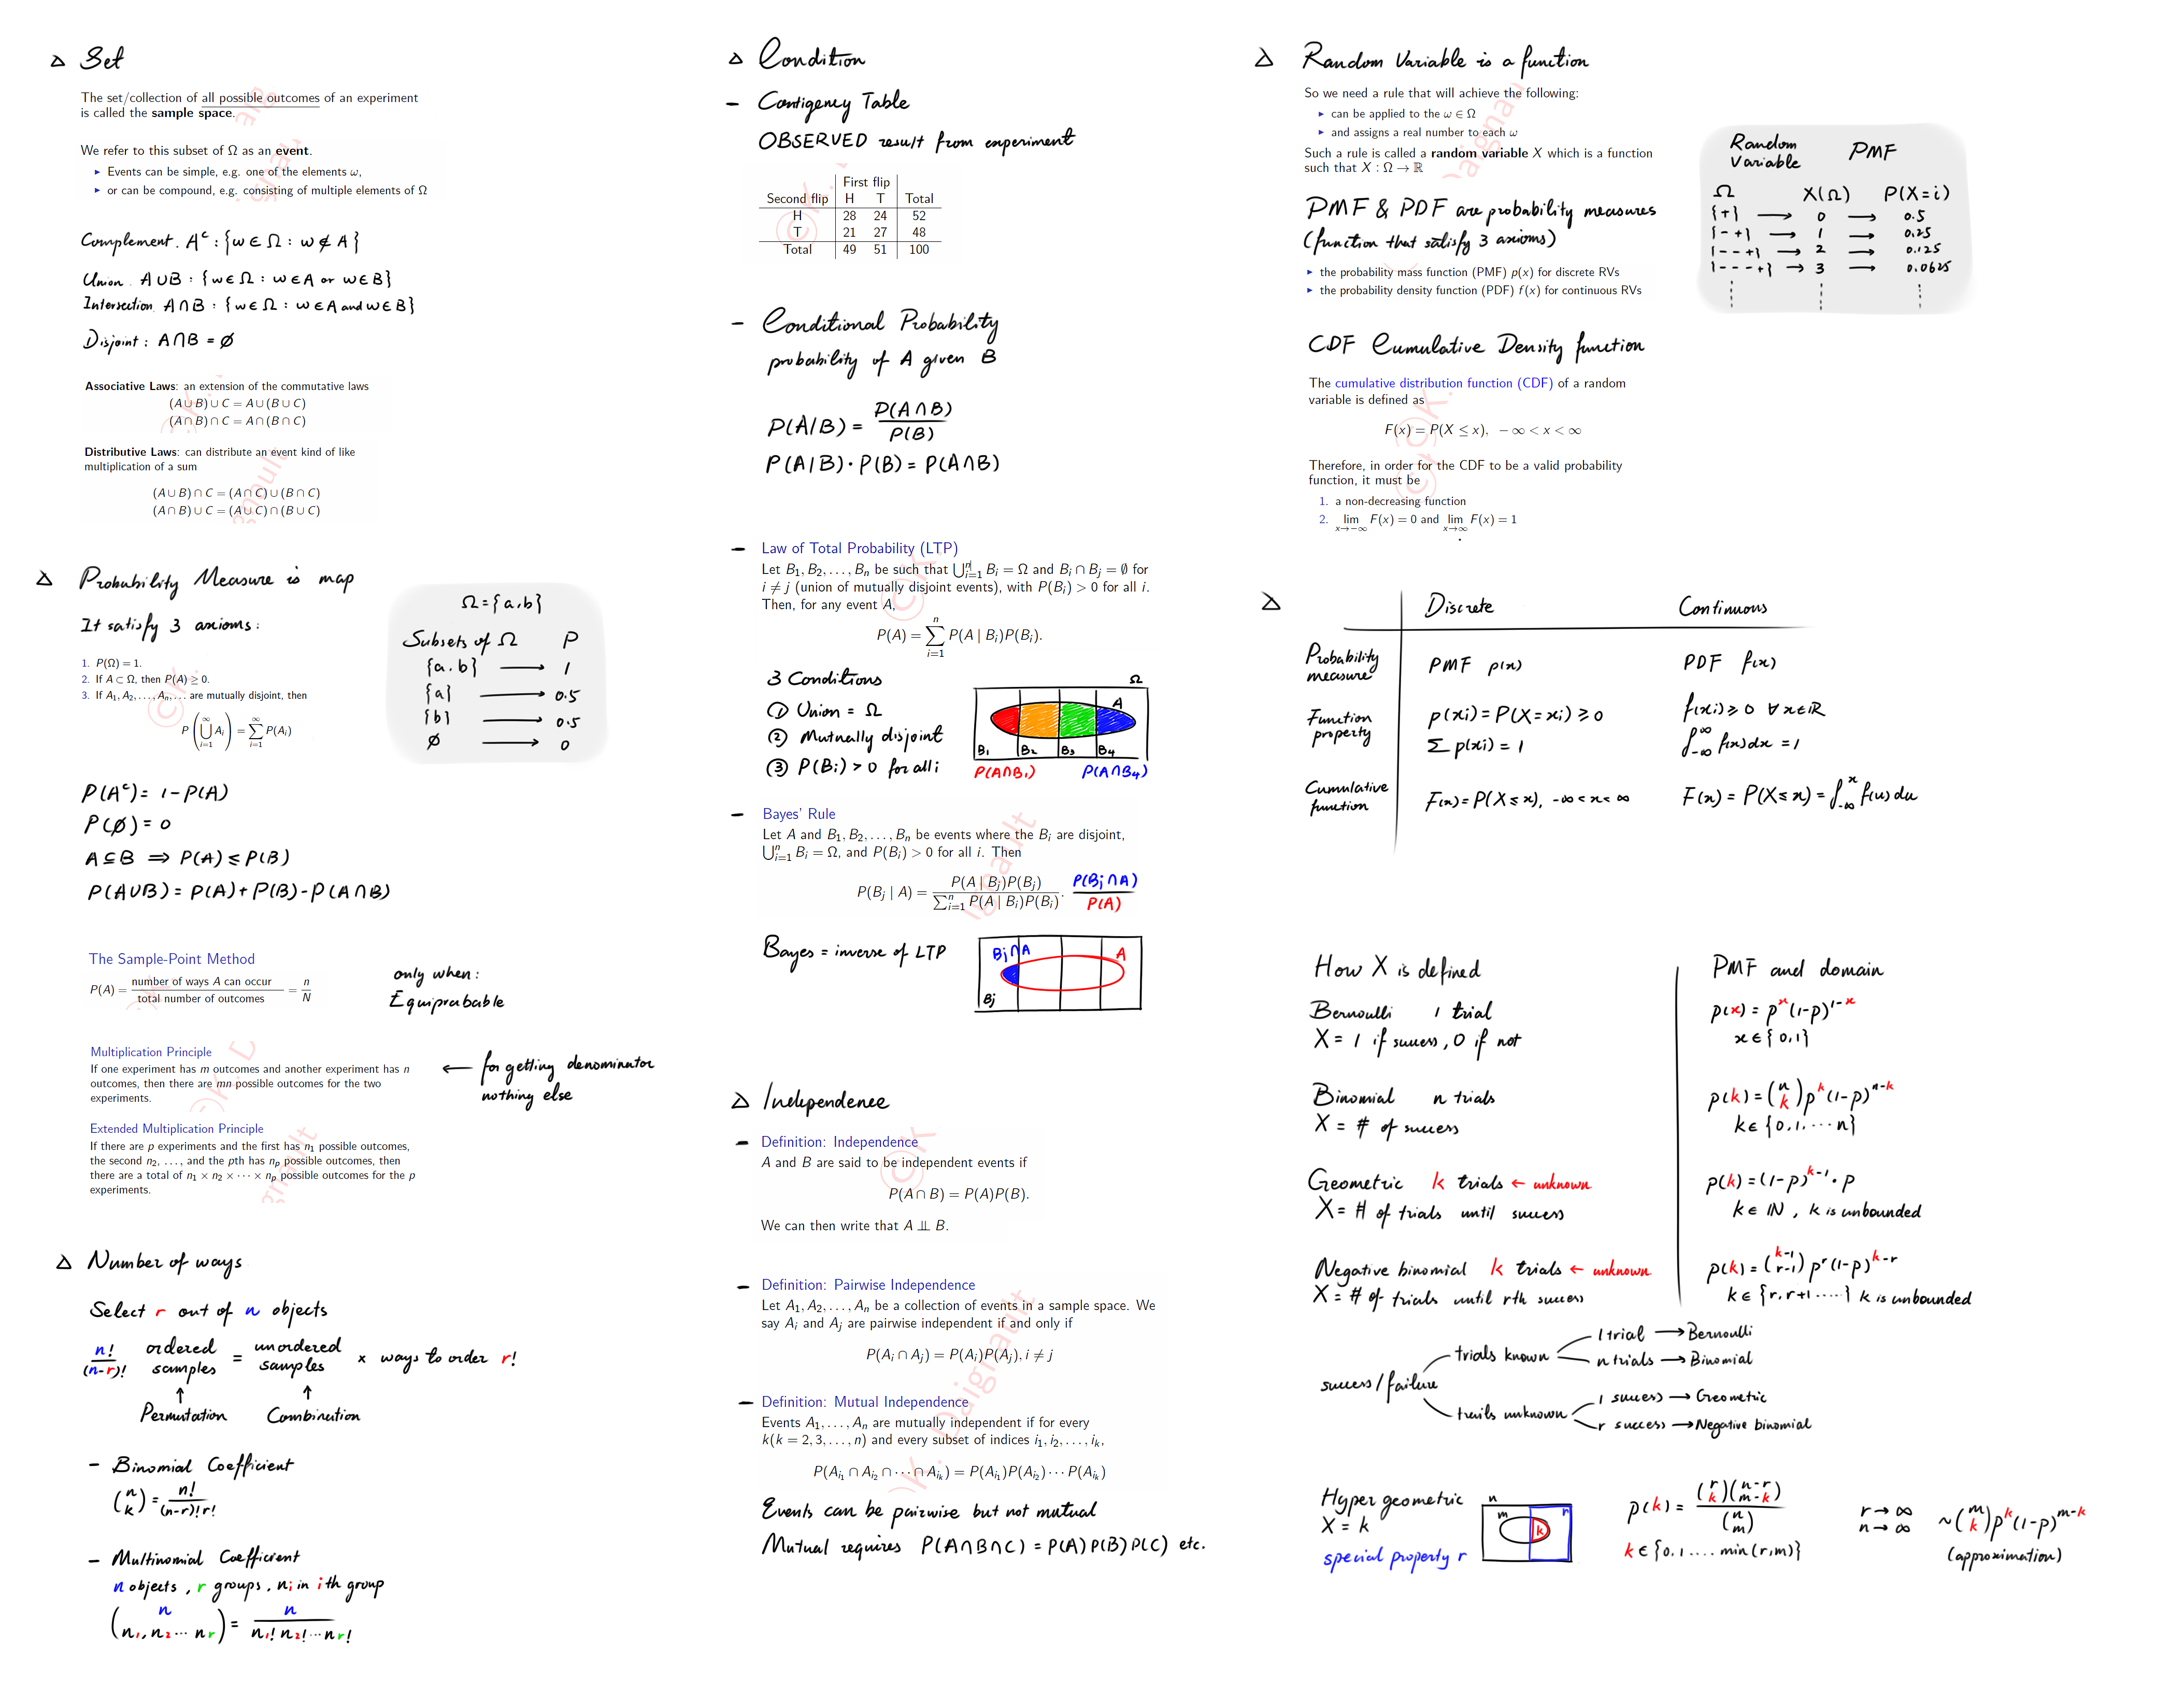 △ Set
The set/collection of all possible outcomes of an experiment
is called the sample space.
We refer to this subset of Ω as an event.
▸ Events can be simple, e.g. one of the elements ω,
▸ or can be compound, e.g. consisting of multiple elements of Ω
Complement. Aᶜ : {ω ∈ Ω : ω ∉ A}
Union. A∪B : {ω ∈ Ω : ω ∈ A or ω ∈ B}
Intersection. A∩B : {ω ∈ Ω : ω ∈ A and ω ∈ B}
Disjoint : A∩B = ∅
Associative Laws: an extension of the commutative laws
(A∪B)∪C = A∪(B∪C)
(A∩B)∩C = A∩(B∩C)
Distributive Laws: can distribute an event kind of like
multiplication of a sum
(A∪B)∩C = (A∩C)∪(B∩C)
(A∩B)∪C = (A∪C)∩(B∪C)
△ Probability Measure is map
It satisfy 3 axioms:
1. P(Ω) = 1.
2. If A ⊂ Ω, then P(A) ≥ 0.
3. If A₁, A₂, . . . , Aₙ, . . . are mutually disjoint, then
P(⋃_{i=1}^{∞} Aᵢ) = ∑_{i=1}^{∞} P(Aᵢ)
Ω = {a.b}
Subsets of Ω P
{a.b} → 1
{a} → 0.5
{b} → 0.5
∅ → 0
P(Aᶜ) = 1 - P(A)
P(∅) = 0
A ⊆ B ⇒ P(A) ≤ P(B)
P(A∪B) = P(A) + P(B) - P(A∩B)
The Sample-Point Method
P(A) = number of ways A can occur / total number of outcomes = n/N
only when:
Equiprobable
Multiplication Principle
If one experiment has m outcomes and another experiment has n
outcomes, then there are mn possible outcomes for the two
experiments.
← for getting denominator
nothing else
Extended Multiplication Principle
If there are p experiments and the first has n₁ possible outcomes,
the second n₂, . . . , and the pth has nₚ possible outcomes, then
there are a total of n₁ × n₂ × · · · × nₚ possible outcomes for the p
experiments.
△ Number of ways
Select r out of n objects
n!/(n-r)! ordered samples = unordered samples × ways to order r!
↑ ↑
Permutation Combination
- Binomial Coefficient
(n k) = n!/(n-r)!r!
- Multinomial Coefficient
n objects, r groups, nᵢ in ith group
(n n₁, n₂ ... nᵣ) = n / n₁! n₂! ... nᵣ!
△ Condition
- Contigency Table
OBSERVED result from experiment
First flip
Second flip H T Total
H 28 24 52
T 21 27 48
Total 49 51 100
- Conditional Probability
probability of A given B
P(A|B) = P(A∩B)/P(B)
P(A|B) · P(B) = P(A∩B)
- Law of Total Probability (LTP)
Let B₁, B₂, . . . , Bₙ be such that ⋃ⁿᵢ₌₁ Bᵢ = Ω and Bᵢ ∩ Bⱼ = ∅ for
i ≠ j (union of mutually disjoint events), with P(Bᵢ) > 0 for all i.
Then, for any event A,
P(A) = ∑_{i=1}^{n} P(A | Bᵢ)P(Bᵢ).
3 Conditions
① Union = Ω
② Mutually disjoint
③ P(Bᵢ) > 0 for all i
Ω
A
B₁ B₂ B₃ B₄
P(A∩B₁) P(A∩B₄)
- Bayes' Rule
Let A and B₁, B₂, . . . , Bₙ be events where the Bᵢ are disjoint,
⋃ⁿᵢ₌₁ Bᵢ = Ω, and P(Bᵢ) > 0 for all i. Then
P(Bⱼ | A) = P(A | Bⱼ)P(Bⱼ) / ∑ⁿᵢ₌₁ P(A | Bᵢ)P(Bᵢ). P(Bj∩A)/P(A)
Bayes = inverse of LTP
Bj∩A A
Bj
△ Independence
- Definition: Independence
A and B are said to be independent events if
P(A ∩ B) = P(A)P(B).
We can then write that A ⫫ B.
- Definition: Pairwise Independence
Let A₁, A₂, . . . , Aₙ be a collection of events in a sample space. We
say Aᵢ and Aⱼ are pairwise independent if and only if
P(Aᵢ ∩ Aⱼ) = P(Aᵢ)P(Aⱼ), i ≠ j
- Definition: Mutual Independence
Events A₁, . . . , Aₙ are mutually independent if for every
k(k = 2, 3, . . . , n) and every subset of indices i₁, i₂, . . . , iₖ,
P(A_{i₁} ∩ A_{i₂} ∩ · · · ∩ A_{iₖ}) = P(A_{i₁})P(A_{i₂}) · · · P(A_{iₖ})
Events can be pairwise but not mutual
Mutual requires P(A∩B∩C) = P(A)P(B)P(C) etc.
△ Random Variable is a function
So we need a rule that will achieve the following:
▸ can be applied to the ω ∈ Ω
▸ and assigns a real number to each ω
Such a rule is called a random variable X which is a function
such that X : Ω → ℝ
Random Variable PMF
Ω X(Ω) P(X=i)
{+} → 0 → 0.5
{-+} → 1 → 0.25
{--+} → 2 → 0.125
{---+} → 3 → 0.0625
PMF & PDF are probability measures
(function that satisfy 3 axioms)
▸ the probability mass function (PMF) p(x) for discrete RVs
▸ the probability density function (PDF) f(x) for continuous RVs
CDF Cumulative Density function
The cumulative distribution function (CDF) of a random
variable is defined as
F(x) = P(X ≤ x), −∞ < x < ∞
Therefore, in order for the CDF to be a valid probability
function, it must be
1. a non-decreasing function
2. lim_{x→−∞} F(x) = 0 and lim_{x→∞} F(x) = 1
△ Discrete Continuous
Probability measure PMF p(x) PDF f(x)
Function property p(xi) = P(X=xi) ≥ 0 f(xi) ≥ 0 ∀x∈ℝ
∑ p(xi) = 1 ∫_{-∞}^{∞} f(x)dx = 1
Cumulative function F(x) = P(X≤x), -∞<x<∞ F(x) = P(X≤x) = ∫_{-∞}^{x} f(u)du
How X is defined PMF and domain
Bernoulli 1 trial p(x) = pˣ(1-p)¹⁻ˣ
X = 1 if success, 0 if not x ∈ {0,1}
Binomial n trials p(k) = (n k) pᵏ(1-p)ⁿ⁻ᵏ
X = # of success k ∈ {0.1. ... n}
Geometric k trials ← unknown p(k) = (1-p)ᵏ⁻¹ · p
X = # of trials until success k ∈ ℕ, k is unbounded
Negative binomial k trials ← unknown p(k) = (k-1 r-1) pʳ(1-p)ᵏ⁻ʳ
X = # of trials until rth success k ∈ {r, r+1 .....} k is unbounded
success/failure
trials known
1 trial → Bernoulli
n trials → Binomial
trails unknown
1 success → Geometric
r success → Negative binomial
Hyper geometric
X = k
special property r
n
m k r
p(k) = (r k)(n-r m-k) / (n m)
k ∈ {0.1 .... min(r,m)}
r → ∞
n → ∞
~ (m k) pᵏ(1-p)ᵐ⁻ᵏ
(approximation)